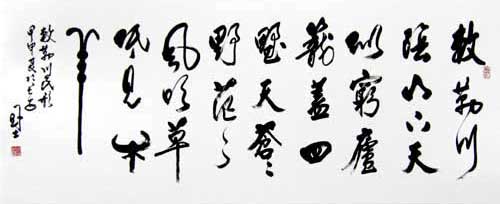 敕勒川
陰山下天
似窮廬
籠蓋四
野天蒼〻
野茫〻
風吹草
低見牛
羊
敕勒川民歌
甲申夏於长安